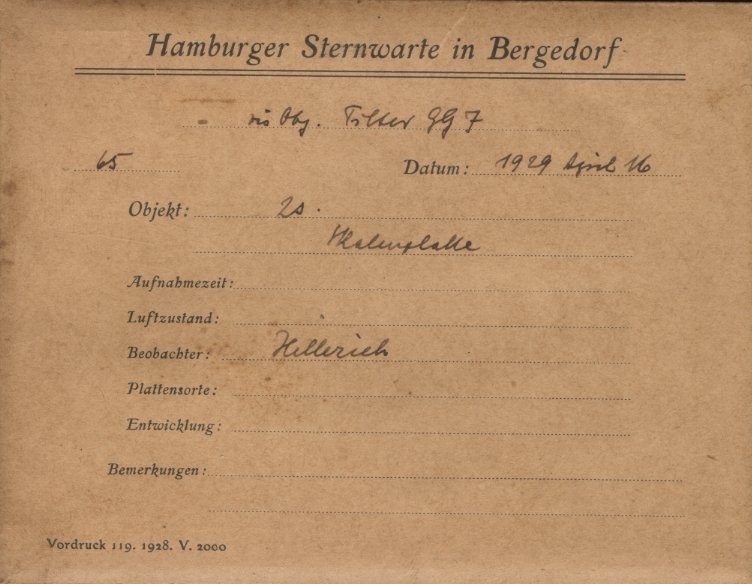 Hamburger Sternwarte in Bergedorf
vis Obj. Filter GG 7
65 Datum: 1929 April 16
Objekt: 2s.
Skalenplatte
Aufnahmezeit:
Luftzustand:
Beobachter: Hellerich
Plattensorte:
Entwicklung:
Bemerkungen:
Vordruck 119. 1928. V. 2000